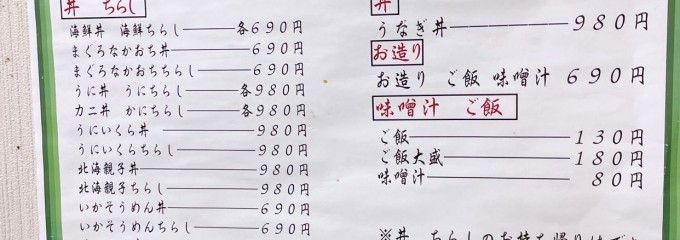 丼 ちらし
海鮮丼 海鮮ちらし 各690円
まぐろなかおち丼 690円
まぐろなかおちちらし 690円
うに丼 うにちらし 各980円
カニ丼 かにちらし 各980円
うにいくら丼 980円
うにいくらちらし 980円
北海親子丼 980円
北海親子ちらし 980円
いかそうめん丼 690円
いかそうめんちらし 690円
丼
うなぎ丼 980円
お造り
お造り ご飯 味噌汁 690円
味噌汁 ご飯
ご飯 130円
ご飯大盛 180円
味噌汁 80円
※丼 ちらしのお持ち帰りは